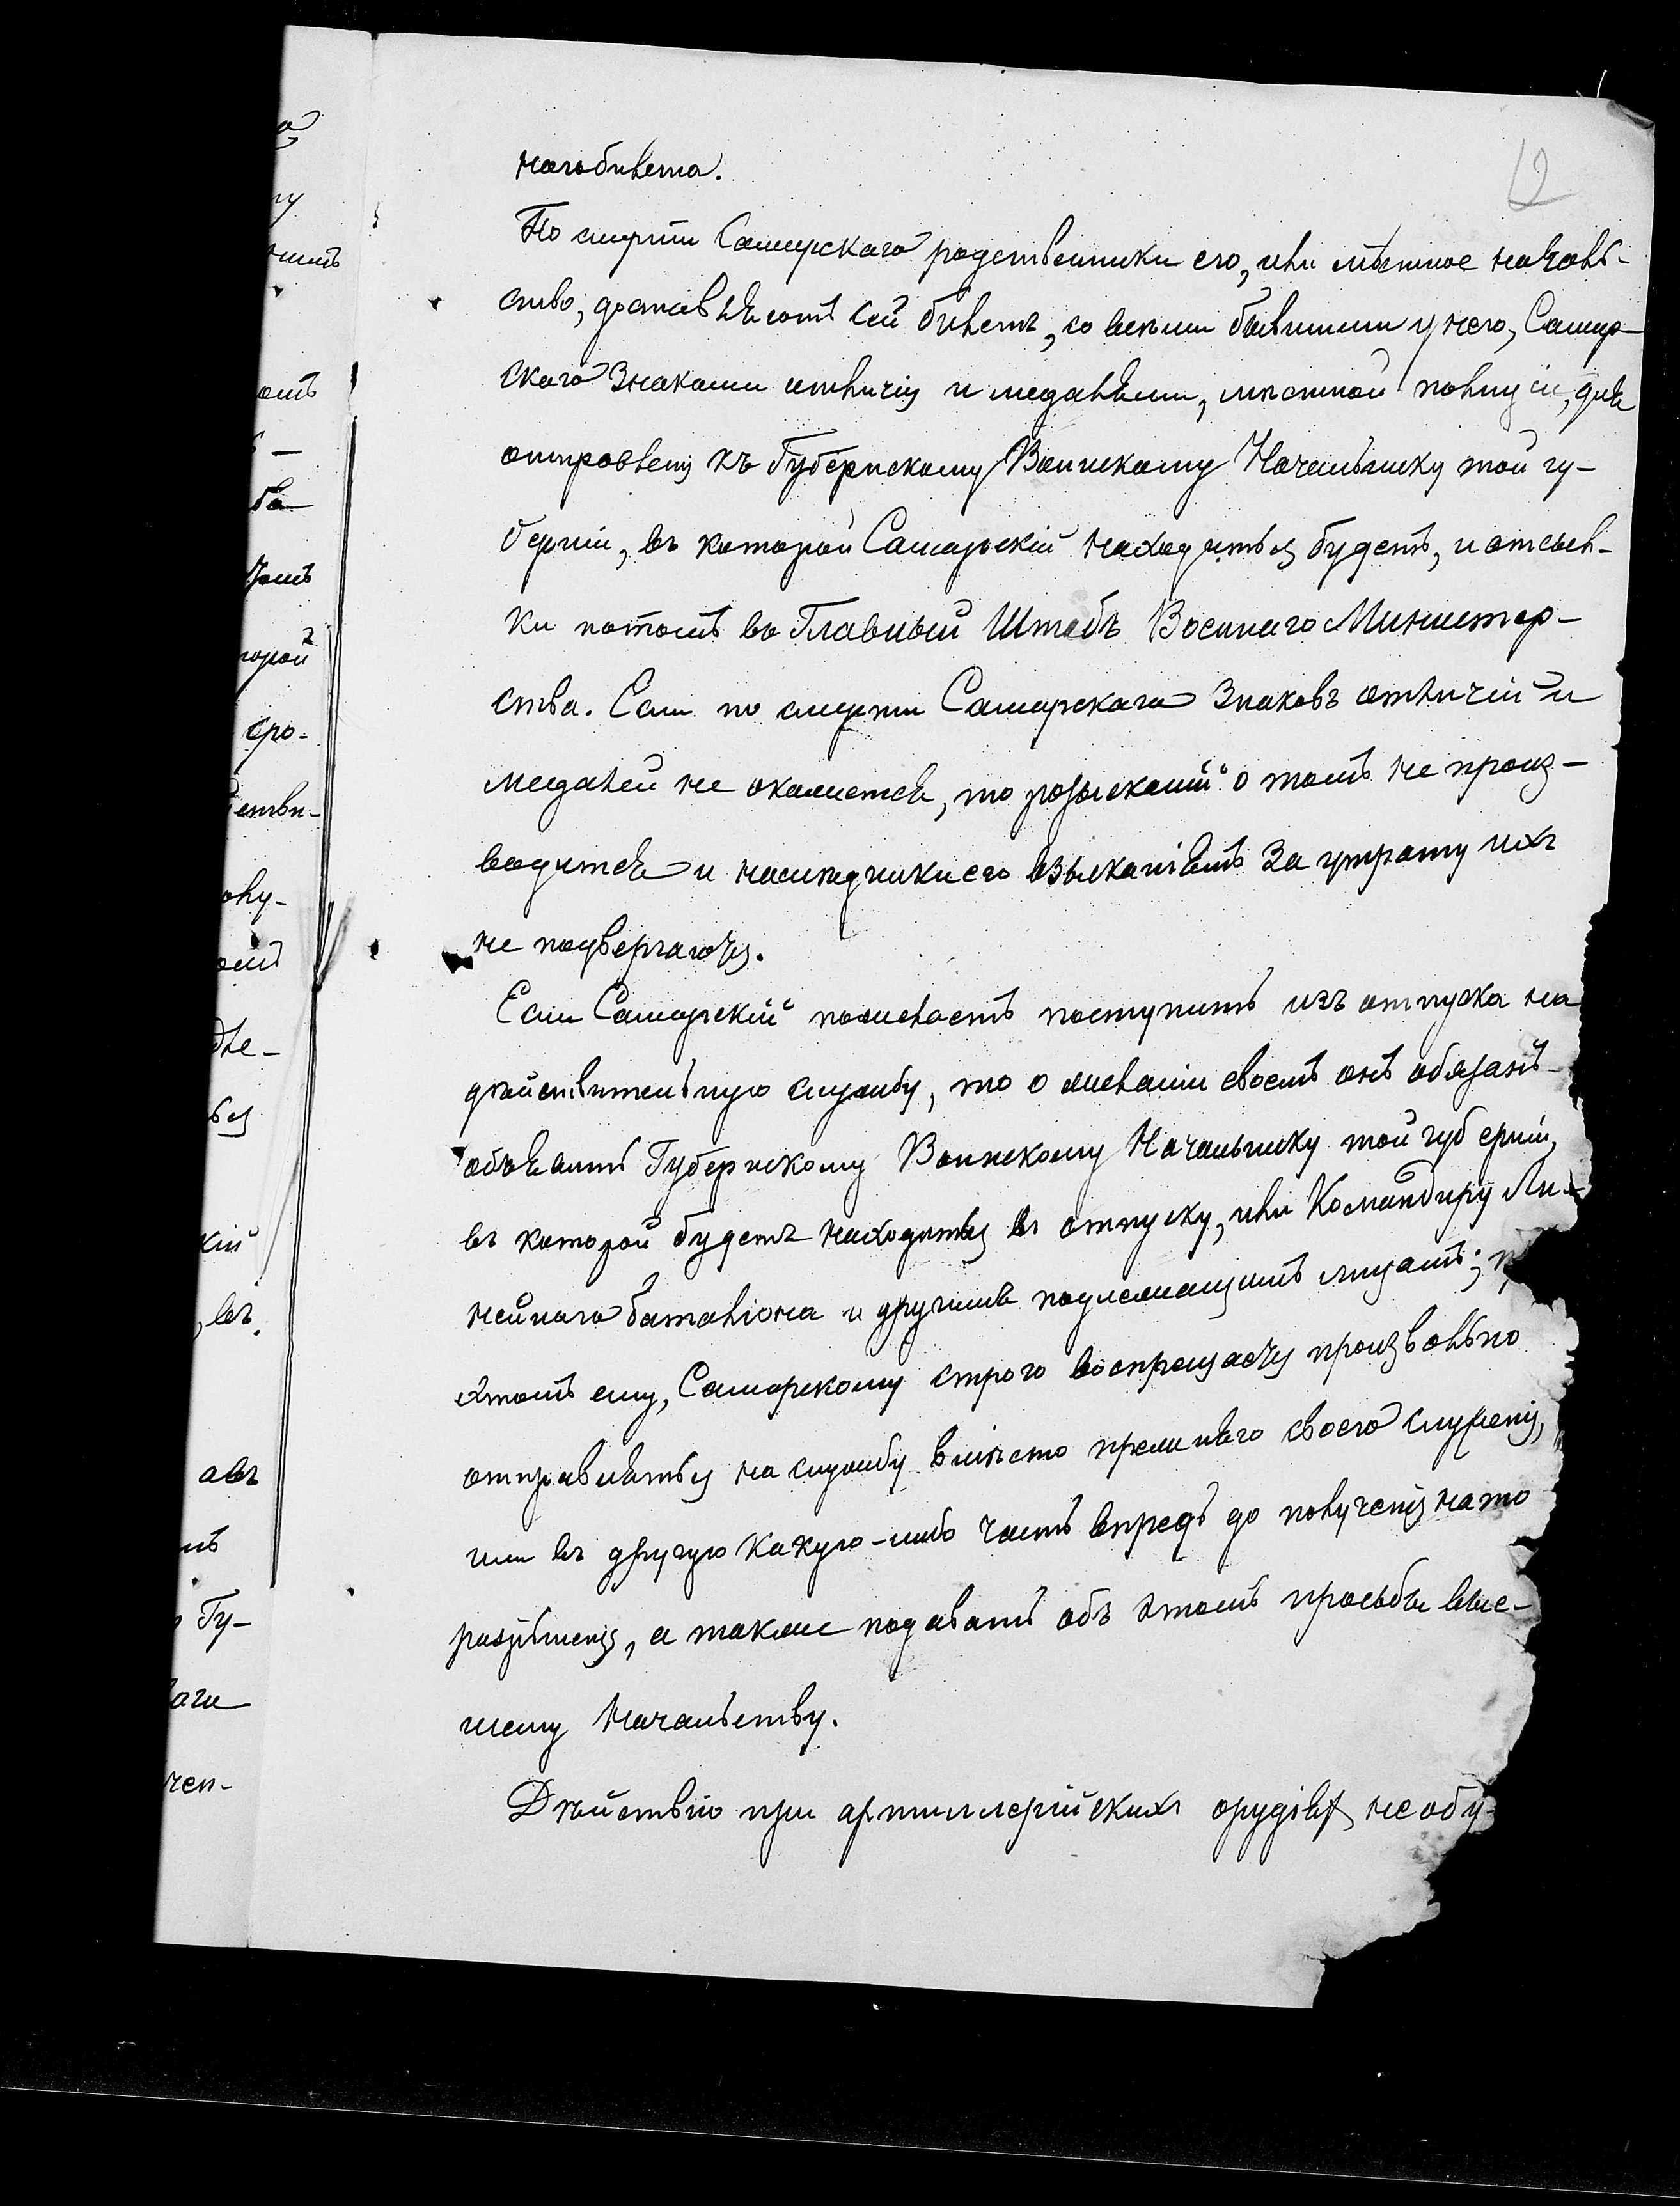 12
наго билета.
По смерти Самарскаго родственники его, или мѣстное началь-
ство, доставляютъ сей билетъ, со всѣми бывшими у него, Самар-
скаго знаками отличія и медалями, мѣстной полиціи, для
отправленія къ Губернскому Воинскому Начальнику той гу-
берніи, въ которой Самарскій находиться будетъ, и отсыл-
ки потомъ въ Главный Штабъ Военнаго Министер-
ства. Если по смерти Самарскаго знаковъ отличій и
медалей не окажется, то розысканій о томъ не произ-
водится и наслѣдники его взысканіямъ за утрату ихъ
не подвергаются.
Если Самарскій пожелаетъ поступить изъ отпуска на
дѣйствительную службу, то о желаніи своемъ онъ обязанъ
объявить Губернскому Воинскому Начальнику той губерніи,
въ которой будетъ находиться въ отпуску, или Командиру Ли-
нейнаго баталіона и другимъ подлежащимъ лицамъ;
этомъ ему, Самарскому строго воспрещается произвольно
отправляться на службу вмѣсто прежняго своего служенія,
или въ другую какую-либо часть впредь до полученія на то
разрѣшенія, а также подавать объ этомъ просьбы выс-
шему начальству.
Дѣйствію при артиллерійскихъ орудіях не обу-